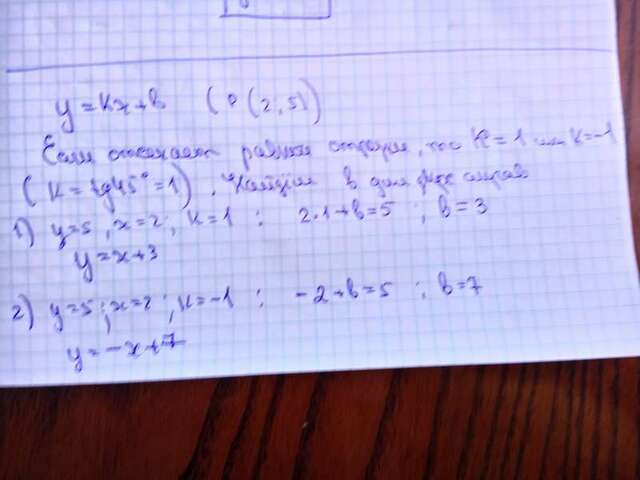 y = kx + b ( P (2, 5))
Если отсекает равные отрезки, то k = 1 или k = -1
( k = tg 45° = 1) . Найдём b для двух случаев
1) y=5 , x=2 ; k=1 ; 2·1+b=5 ; b=3
y=x+3
2) y=5 ; x=2 ; k=-1 ; -2+b=5 ; b=7
y=-x+7